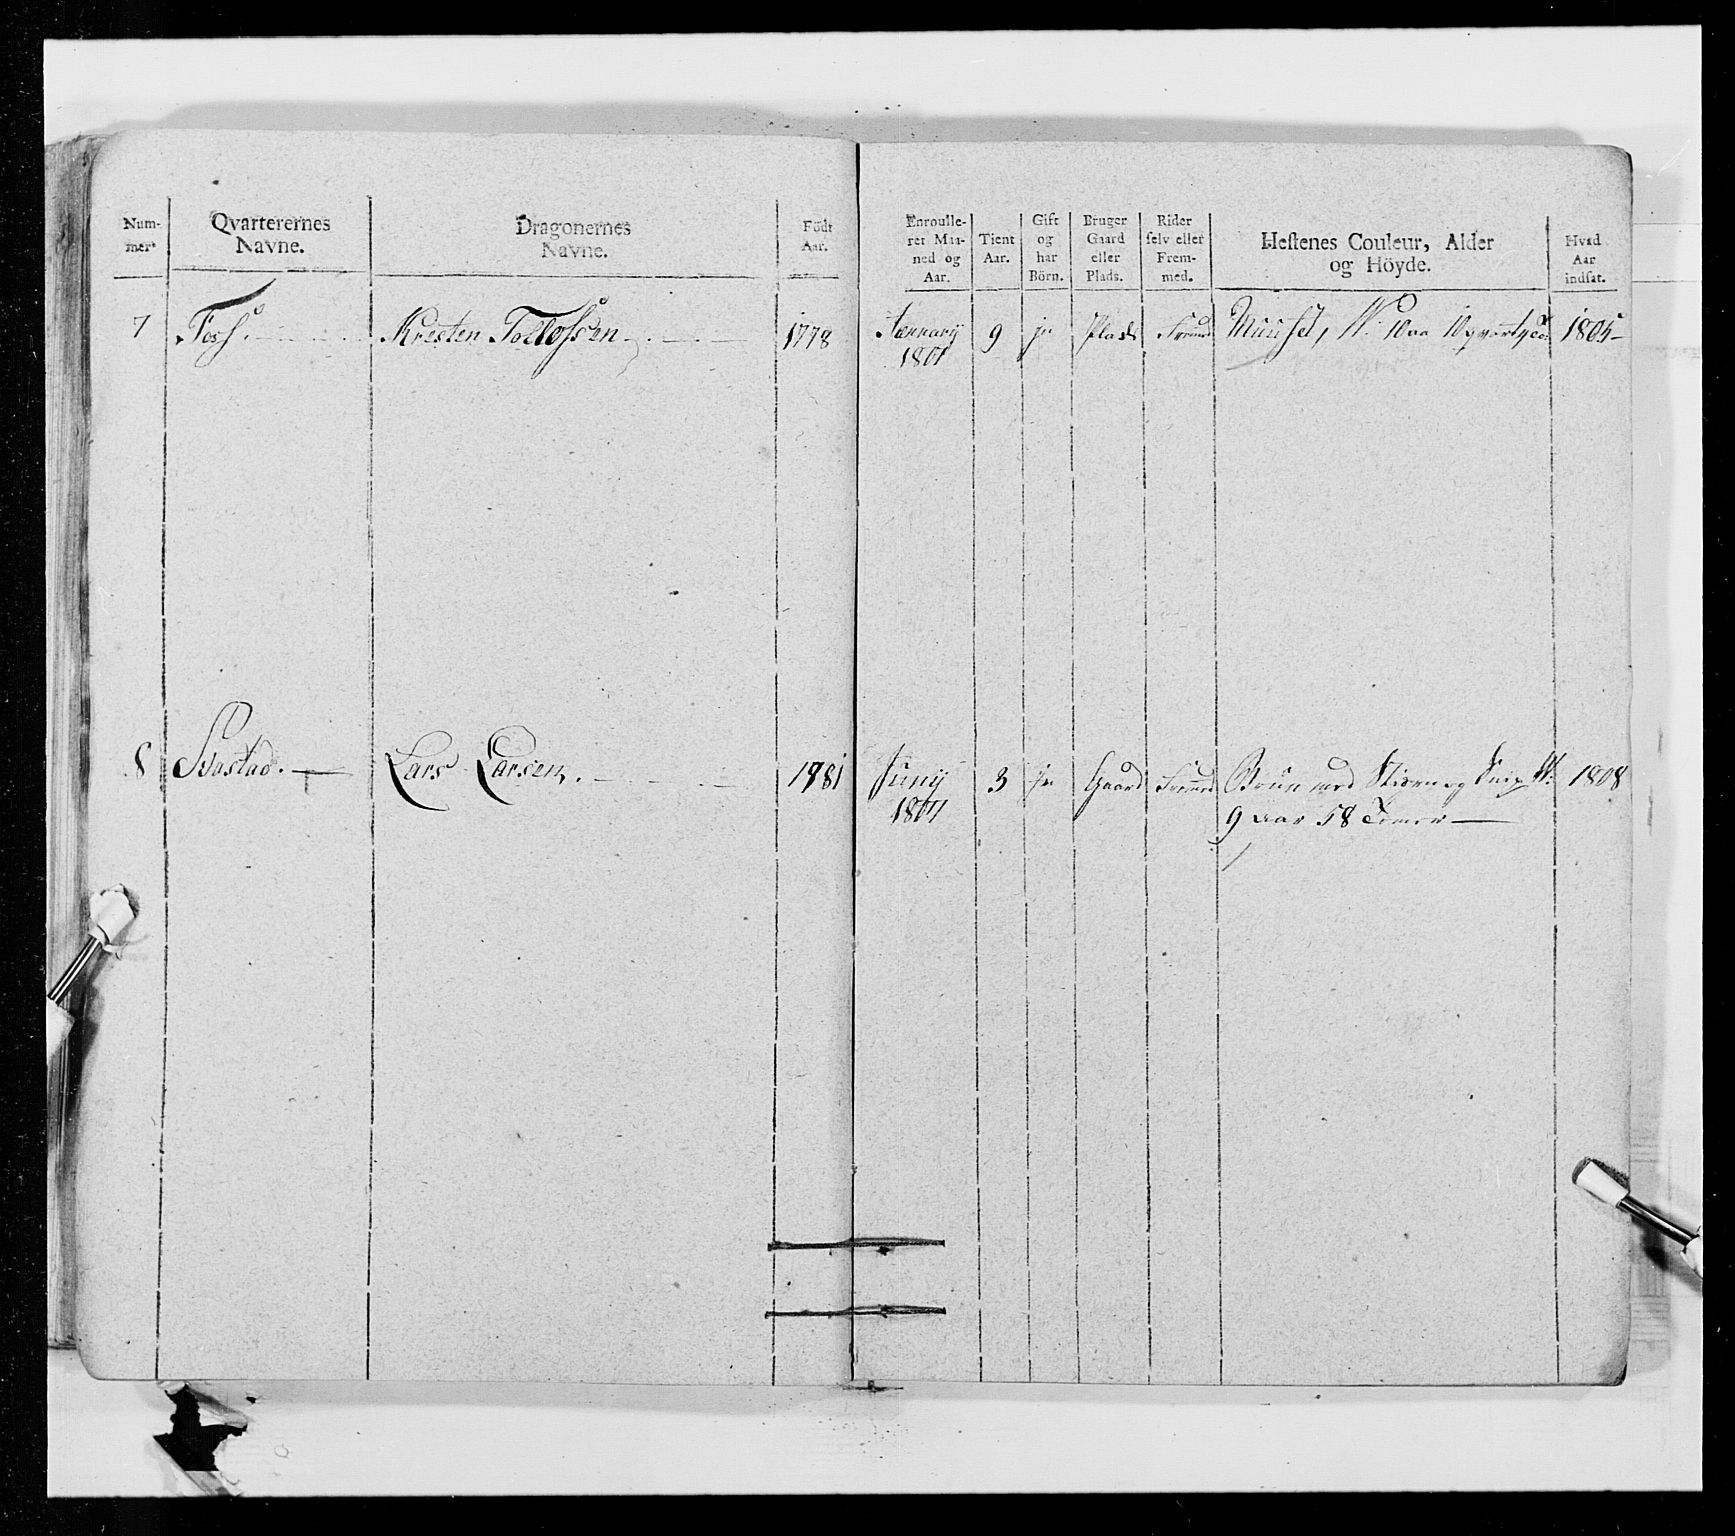 Num-
mer
Qvarterernes
Navne.
Dragonernes
Navne.
Födt
Aar.
Enroulle-
ret Maa-
ned og
Aar.
Tient
Aar.
Gift
og
har
Börn.
Bruger
Gaard
eller
Plads.
Rider
selv eller
Frem-
med.
Hestenes Couleur, Alder
og Höyde.
Hvad
Aar
indsat.
7
Foss.
Kresten Tollossen
1778
Jannarij
1801
9
ja
Plads
Fremd
Muuset, W. 10 aa 10 qvarty
1805
8
Bastad.
Lars Larsen.
1781
Junij
1807
3
ja
Gaard
Fremd
Bruun med Stiern og Snip W:
9 aar 58 Tomer
1808